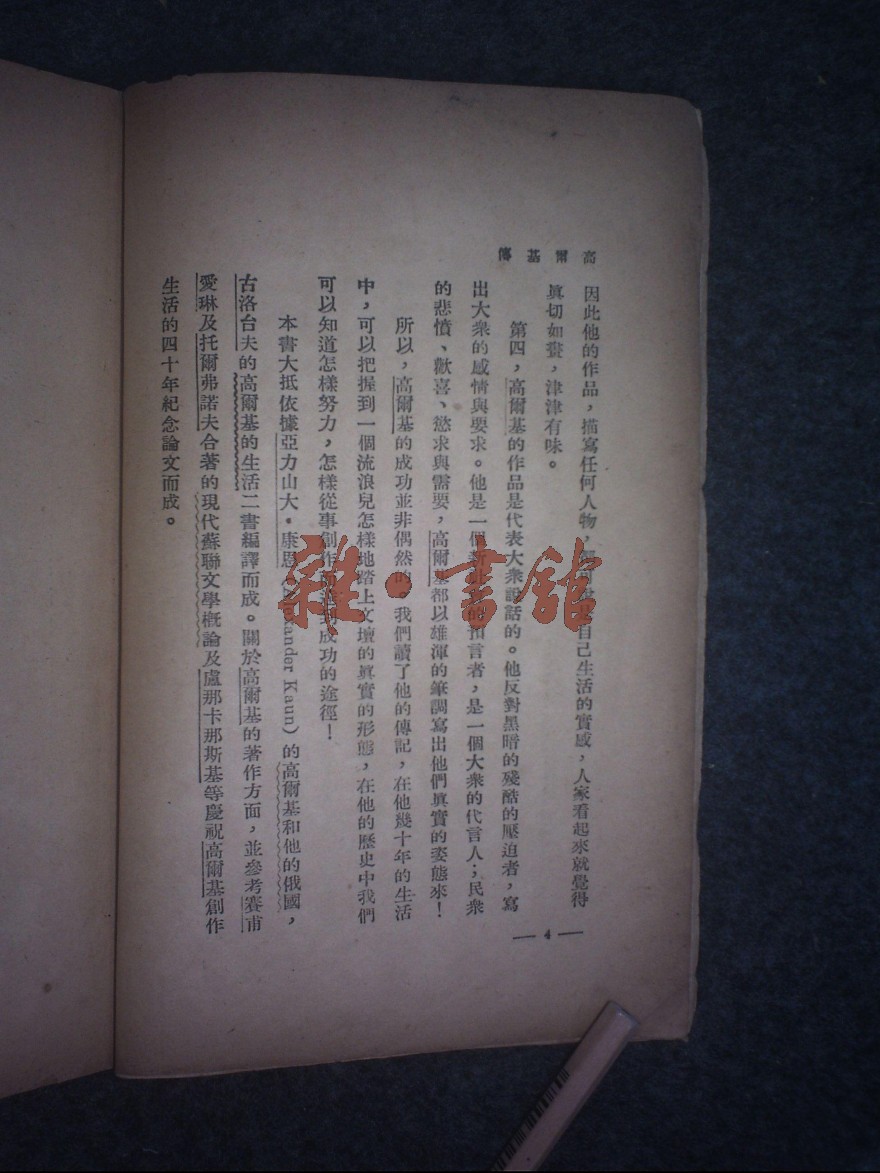 高爾基傳
因此他的作品，描寫任何人物，自己生活的實感，人家看起來就覺得
眞切如畫，津津有味。
第四，高爾基的作品是代表大衆說話的。他反對黑暗的殘酷的壓迫者，寫
出大衆的感情與要求。他是一個新的預言者，是一個大衆的代言人；民衆
的悲憤、歡喜、慾求與需要，高爾基都以雄渾的筆調寫出他們眞實的姿態來！
所以，高爾基的成功並非偶然的。我們讀了他的傳記，在他幾十年的生活
中，可以把握到一個流浪兒怎樣地踏上文壇的眞實的形態，在他的歷史中我們
可以知道怎樣努力，怎樣從事創作成功的途徑！
本書大抵依據亞力山大·康恩（Alexander Kaun）的高爾基和他的俄國，
古洛台夫的高爾基的生活二書編譯而成。關於高爾基的著作方面，並參考賽甫
愛琳及托爾弗諾夫合著的現代蘇聯文學槪論及盧那卡那斯基等慶祝高爾基創作
生活的四十年紀念論文而成。
— 4 —
雜·書館